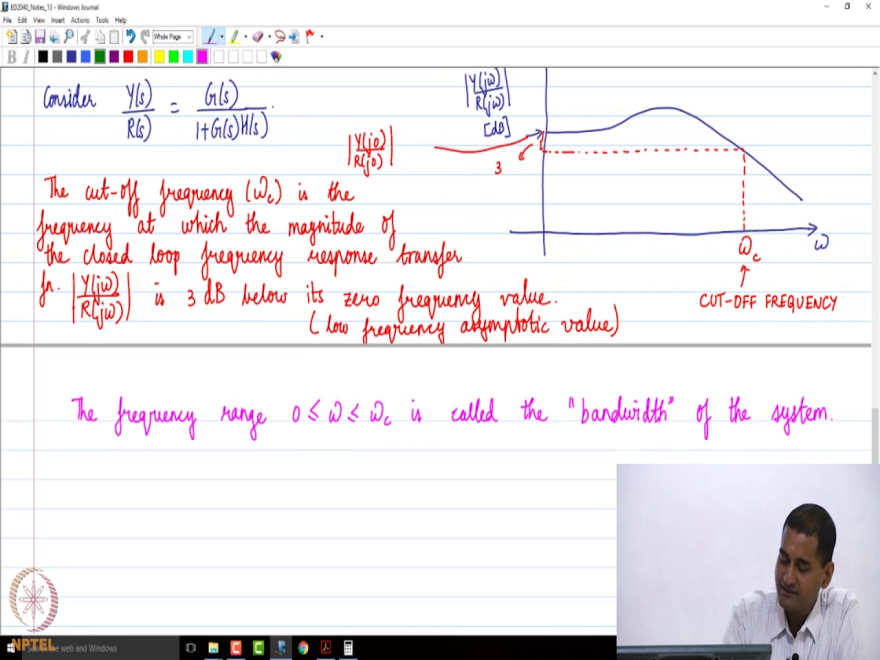 ED2040_Notes_13 - Windows Journal
File Edit View Insert Actions Tools Help
Whole Page
B I
Consider Y(s)/R(s) = G(s)/(1+G(s)H(s)).
|Y(jω)/R(jω)|
[dB]
|Y(j0)/R(j0)|
3
ω
ω_c
CUT-OFF FREQUENCY
The cut-off frequency (ω_c) is the
frequency at which the magnitude of
the closed loop frequency response transfer
fn. |Y(jω)/R(jω)| is 3 dB below its zero frequency value.
(low frequency asymptotic value)
The frequency range 0 ≤ ω ≤ ω_c is called the "bandwidth" of the system.
NPTEL
the web and Windows